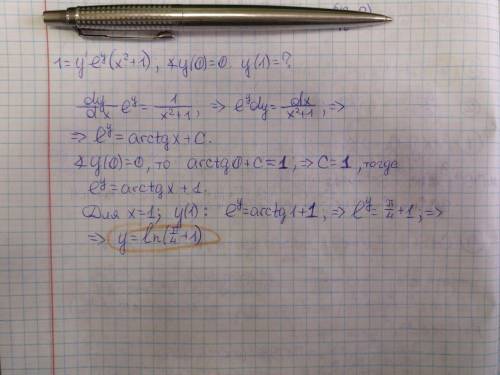 1=y'e^y(x²+1), ∡y(0)=0. y(1)=?
dy/dx e^y = 1/(x²+1), ⇒ e^y dy = dx/(x²+1), ⇒
⇒ e^y = arctgx+C.
∡y(0)=0, то arctg0+C=1, ⇒ C=1, тогда
e^y = arctgx+1.
Для x=1; y(1): e^y=arctg1+1, ⇒ e^y= π/4+1; ⇒
⇒ y=ln(π/4+1)